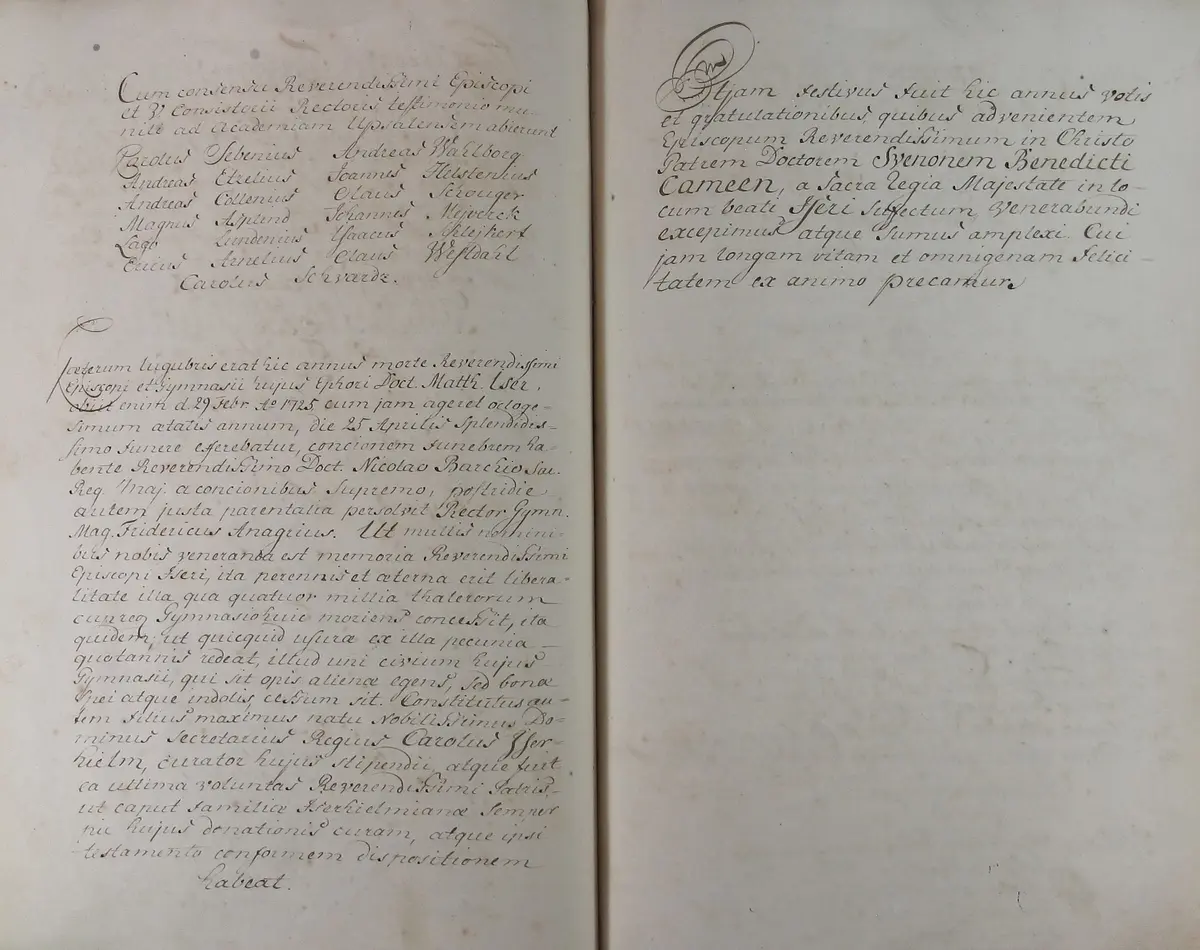 Cum consensu Reverendissimi Episcopi
et V Consistorii Rectoris testimonio mu-
niti ad Academiam Upsalensem abierunt
Carolus Sebenius Andreas Wahlborg
Andreas Etzelius Joannes
Andreas Collenius Olaus Schouger
Magnus Asplind Johannes
Lago Lundenius Isaacus
Ericus Arnelius Claus Westdahl
Carolus Schvardz.
Cæterum lugubris erat hic annus morte Reverendissimi
Episcopi et Gymnasii hujus Ephori Doct. Matth. Iser,
obiit enim d. 29 Febr. Ao 1725, cum jam ageret octoge-
simum ætatis annum, die 25 Aprilis splendidis-
simo funere efferebatur, concionem funebrem ha-
bente Reverendissimo Doct. Nicolao Barchio Sac.
Reg. Maj. a concionibus supremo, postridie
autem justa parentalia persolvit Rector Gymn.
Mag. Fridericus Anagrius. Ut multis nomini-
bus nobis veneranda est memoria Reverendissimi
Episcopi Iseri, ita perennis et æterna erit libera-
litate illa qua quatuor millia thalerorum
cupreo Gymnasio huic moriens concessit, ita
quidem, ut quicquid usuræ ex illa pecunia
quotannis redeat, illud uni civium hujus
Gymnasii, qui sit opis alienæ egens, sed bonæ
spei atque indolis, cessum sit. Constitutus au-
tem filius maximus natu Nobilissimus Do-
minus Secretarius Regius Carolus Iser-
hielm, curator hujus stipendii, atque fuit
ea ultima voluntas Reverendissimi Patris,
ut caput familiæ Iserhielmianæ semper
hujus donationis curam, atque ipsi
testamento conformem dispositionem
habeat.
Etjam festivus fuit hic annus votis
et gratulationibus, quibus advenientem
Episcopum Reverendissimum in Christo
Patrem Doctorem Svenonem Benedicti
Cameen, a Sacra Regia Majestate in lo-
cum beati Iseri suffectum, venerabundi
excepimus atque sumus amplexi. Cui
jam longam vitam et omnigenam felici-
tatem ex animo precamur.